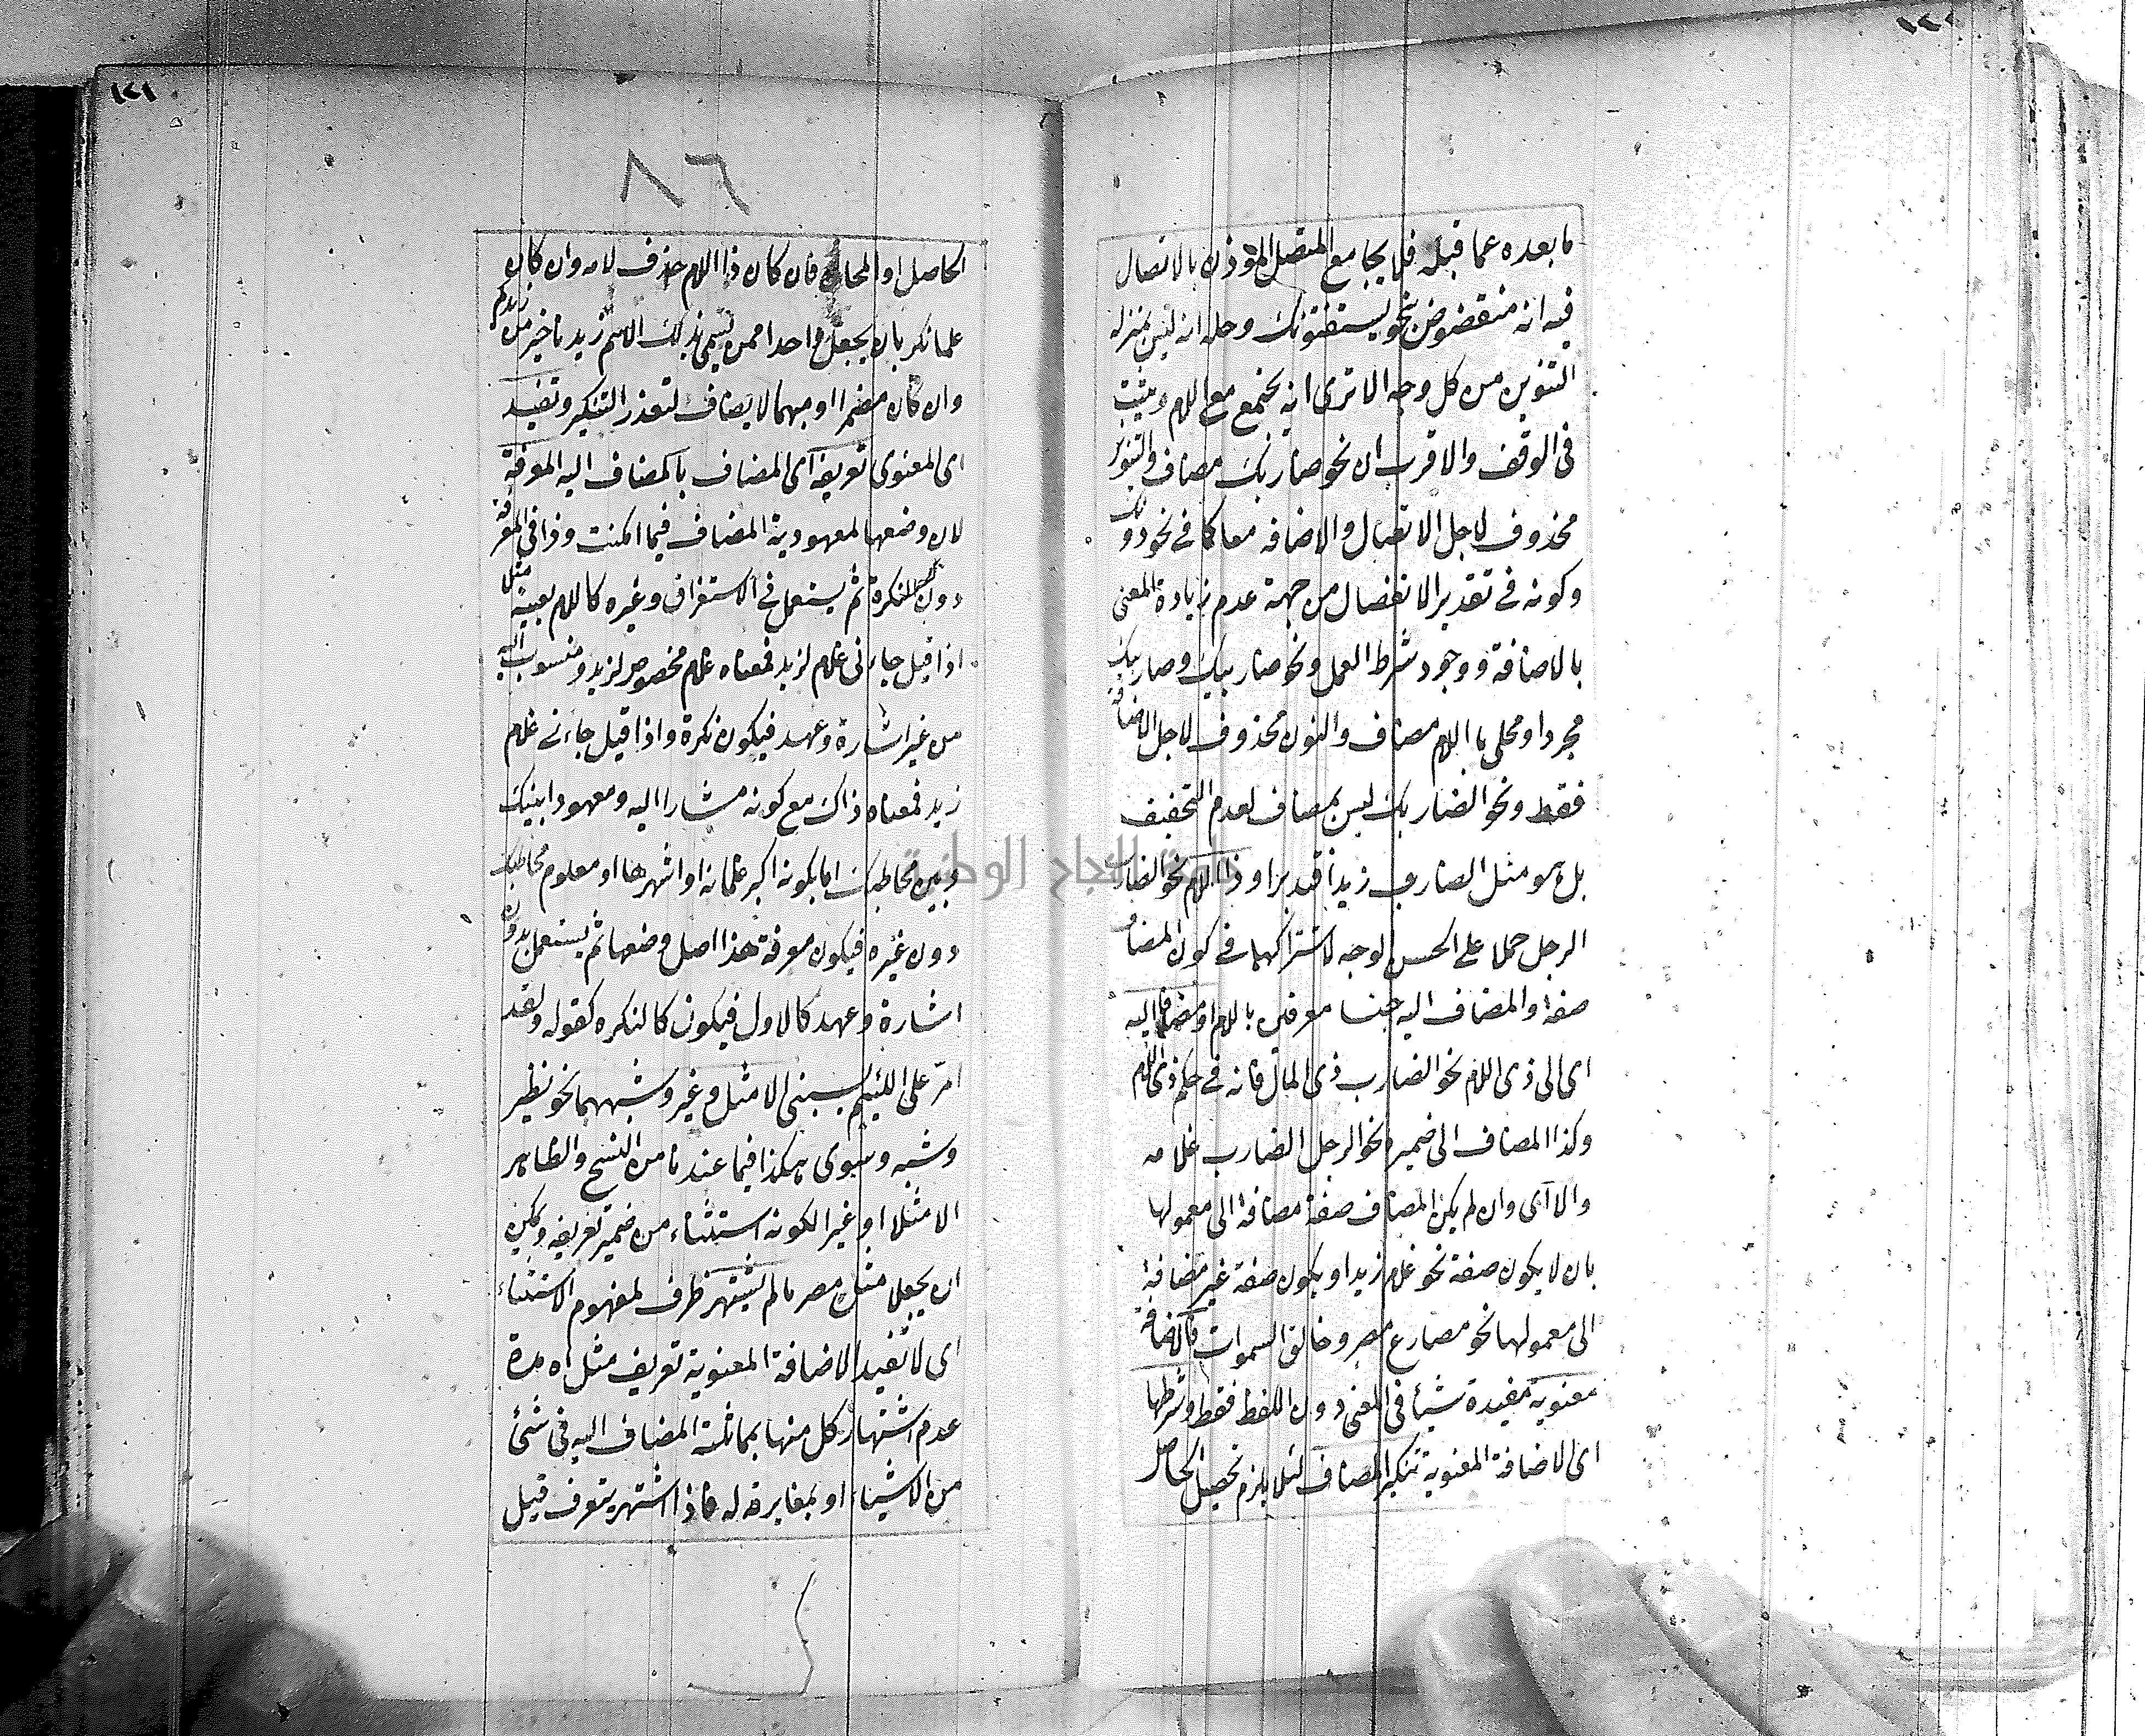 ما بعده عما قبله فلا يجامع المتصل المؤذن بالاتصال
فيه انه منقضوض بنحو يستفتونك وحله انه ليس بمنزلة
التنوين من كل وجه الا ترى انه يجتمع مع اللام ويثبت
فى الوقف والاقرب ان نحو ضاربك مضاف والتنوين
محذوف لاجل الاتصال والاضافه معا كما فى نحو دونك
وكونه فى تقدير الانفصال من جهة عدم زيادة المعنى
بالاضافة ووجود شرط العمل ونحو ضاربيك وضاربيك
مجردا ومحلى باللام مضاف والنون محذوف لاجل الاضافة
فقط ونحو الضاربك ليس بمضاف لعدم التخفيف
بل هو مثل الضارب زيدا تقديرا او ذا اللام نحو الضارب
الرجل حملا على الحسن الوجه لاشتراكهما فى كون المضاف
صفة والمضاف اليه جنسا معرفين باللام او مضافا اليه
اى الى ذى اللام نحو الضارب ذى المال فانه فى حكم ذى اللام
وكذا المضاف الى ضميره نحو الرجل الضارب غلامه
والا اى وان لم يكن المضاف صفة مضافة الى معمولها
بان لا يكون صفة نحو غلام زيد او يكون صفة غير مضافة
الى معمولها نحو مصارع مصر وخالق السموات فالاضافة
معنوية مفيدة شيئا فى المعنى دون اللفظ فقط وشرطها
اى الاضافة المعنوية تنكير المضاف لئلا يلزم تحصيل الحاصل
١٢١
٨٦
الحاصل او المحال فان كان ذا اللام حذف لامه وان كان
علما نكر بان يجعل واحدا ممن يسمى بذلك الاسم زيدنا خير من زيدكم
وان كان مضمرا او مبهما لا يضاف لتعذر التنكير وتفيد
اى المعنوى تعريفه اى المضاف بالمضاف اليه المعرفة
لان وضعها لمعهودية المضاف فيما امكنت وذا فى المعرفة
دون النكرة ثم يستعمل فى الاستغراق وغيره كاللام بعينه مثلا
اذا قيل جاءنى غلام لزيد فمعناه غلام مخصوص لزيد ومنسوب اليه
من غير اشارة وعهد فيكون نكرة واذا قيل جاءنى غلام
زيد فمعناه ذاك مع كونه مشارا اليه ومعهودا بينك
وبين مخاطبك اما بكونه اكبر غلمانه او اشهرها او معلوم مخاطبك
دون غيره فيكون معرفة هذا اصل وضعها ثم يستعمل بدون
اشارة وعهد كالاول فيكون كالنكره كقوله ولقد
امرّ على اللئيم يسبنى الا مثل وغير وشبههما نحو نظير
وشبه وسوى هكذا فيما عندنا من النسخ والظاهر
الا مثلا او غيرا لكونه استثناء من ضمير تعريفه ويمكن
ان يجعل مثل مصر ما لم يشتهر ظرف لمفهوم الاستثناء
اى لا تفيد الاضافة المعنوية تعريف مثل اه مدة
عدم اشتهار كل منها بمماثلة المضاف اليه فى شئ
من الاشياء او بمغايرته له فاذا اشتهر يتعرف قيل